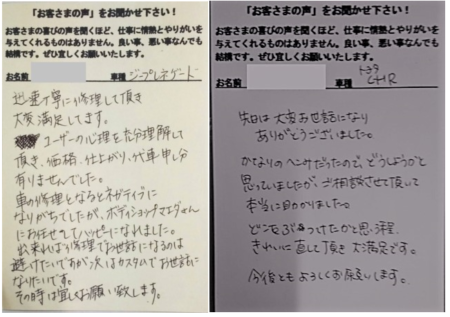 「お客さまの声」をお聞かせ下さい!
お客さまの喜びの声を聞くほど、仕事に情熱とやりがいを
与えてくれるものはありません。良い事、悪い事なんでも
結構です。ぜひ宜しくお願いいたします。
お名前 車種 ジープレネゲード
迅速丁寧に修理して頂き
大変満足してます。
ユーザーの心理を充分理解して
頂き、価格、仕上がり、代車申し分
有りませんでした。
車の修理となるとネガティブに
なりがちでしたが、ボディショップマエダさん
にお任せしてハッピーになれました。
出来れば修理でお世話になるのは
避けたいですが次はカスタムでお世話に
なりたいです。
その時は宜しくお願い致します。
「お客さまの声」をお聞かせ下さい!
お客さまの喜びの声を聞くほど、仕事に情熱とやりがいを
与えてくれるものはありません。良い事、悪い事なんでも
結構です。ぜひ宜しくお願いいたします。
お名前 車種 トヨタ
C-HR
先日は大変お世話になり
ありがとうございました。
かなりのヘコみだったので、どうしようかと
思っていましたが、ご相談させて頂いて
本当に助かりました。
どこをぶつけたかと思う程、
きれいに直して頂き大満足です。
今後ともよろしくお願いします。